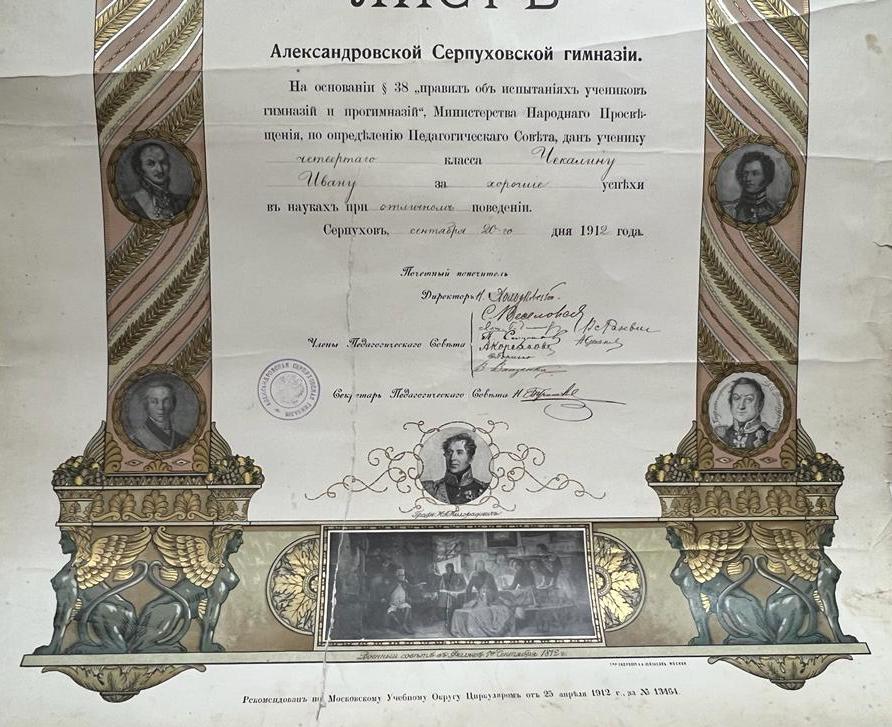 ЛИСТЪ
Александровской Серпуховской гимназіи.
На основаніи § 38 „правилъ объ испытаніяхъ учениковъ
гимназій и прогимназій“, Министерства Народнаго Просвѣ-
щенія, по опредѣленію Педагогическаго Совѣта, данъ ученику
четвертаго класса Чекалину
Ивану за хорошіе успѣхи
въ наукахъ при отличномъ поведеніи.
Серпуховъ, сентября 20-го дня 1912 года.
Почетный попечитель
Директоръ Н.
Члены Педагогическаго Совѣта
АЛЕКСАНДРОВСКАЯ СЕРПУХОВСКАЯ ГИМНАЗІЯ
Секретарь Педагогическаго Совѣта Н.
Графъ М. А. Милорадовичъ
Военный совѣтъ въ Филяхъ 1го Сентября 1812 г.
Рекомендованъ по Московскому Учебному Округу Циркуляромъ отъ 25 апрѣля 1912 г., за № 13464.